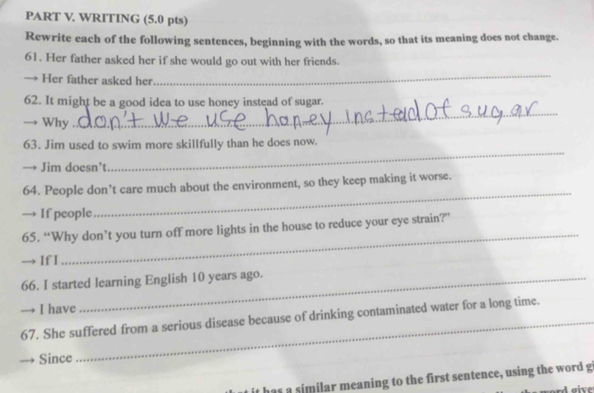 PART V. WRITING (5.0 pts)
Rewrite each of the following sentences, beginning with the words, so that its meaning does not change.
61. Her father asked her if she would go out with her friends.
→ Her father asked her
62. It might be a good idea to use honey instead of sugar.
→ Why don't we use honey instead of sugar
63. Jim used to swim more skillfully than he does now.
→ Jim doesn't
64. People don't care much about the environment, so they keep making it worse.
→ If people
65. "Why don't you turn off more lights in the house to reduce your eye strain?"
→ If I
66. I started learning English 10 years ago.
→ I have
67. She suffered from a serious disease because of drinking contaminated water for a long time.
→ Since
it has a similar meaning to the first sentence, using the word